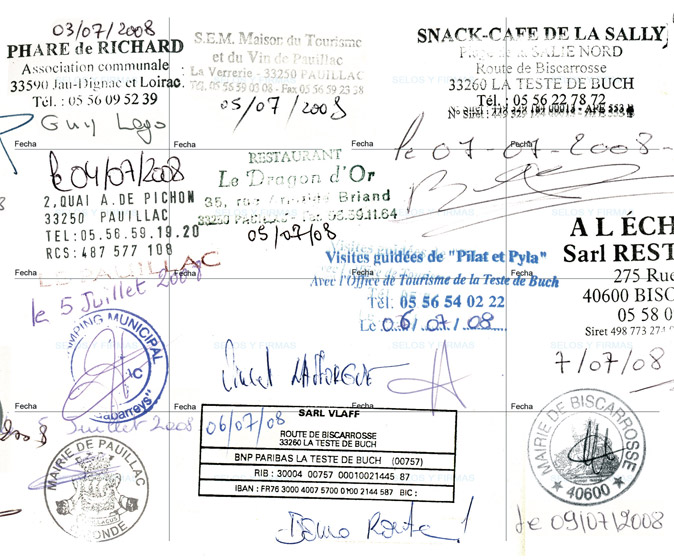 03/07/2008
PHARE de RICHARD
Association communale
33590 Jau-Dignac et Loirac
Tél. : 05 56 09 52 39
Guy Lago
Fecha
S.E.M. Maison du Tourisme
et du Vin de Pauillac
La Verrerie - 33250 PAUILLAC
Tél. 05 56 59 03 08 - Fax 05 56 59 23 38
05/07/2008
Fecha
SNACK-CAFE DE LA SALLY
SALIE NORD
Route de Biscarrosse
33260 LA TESTE DE BUCH
Tél. : 05 56 22 78 72
N° Siret :
SELOS Y FIRMAS
Fecha
le 07-07-2008-
le 04/07/2008
2, QUAI A. DE PICHON
33250 PAUILLAC
TEL: 05.56.59.19.20
RCS: 487 577 108
LE PAUILLAC
RESTAURANT
Le Dragon d'Or
35, rue Briand
33250 PAUILLAC - 56.59.11.64
05/07/08
Fecha
Visites guidées de "Pilat et Pyla"
Avec l'Office de Tourisme de la Teste de Buch
Tél: 05 56 54 02 22
Le 06/07/08
Fecha
A L ÉCH
Sarl REST
275 Rue
40600 BISC
05 58 0
Siret 498 773 274
7/07/08
le 5 Juillet 2008
MPING MUNICIPAL
Gabarreys"
Fecha
5 Juillet 2008
MAIRIE DE PAUILLAC
Fecha
SELOS Y FIRMAS
Fecha
06/07/08
SARL VLAFF
ROUTE DE BISCARROSSE
33260 LA TESTE DE BUCH
BNP PARIBAS LA TESTE DE BUCH (00757)
RIB : 30004 00757 00010021445 87
IBAN : FR76 3000 4007 5700 0100 2144 587 BIC :
Bonne Route !
Fecha
MAIRIE DE BISCARROSSE
40600
le 09/07/2008